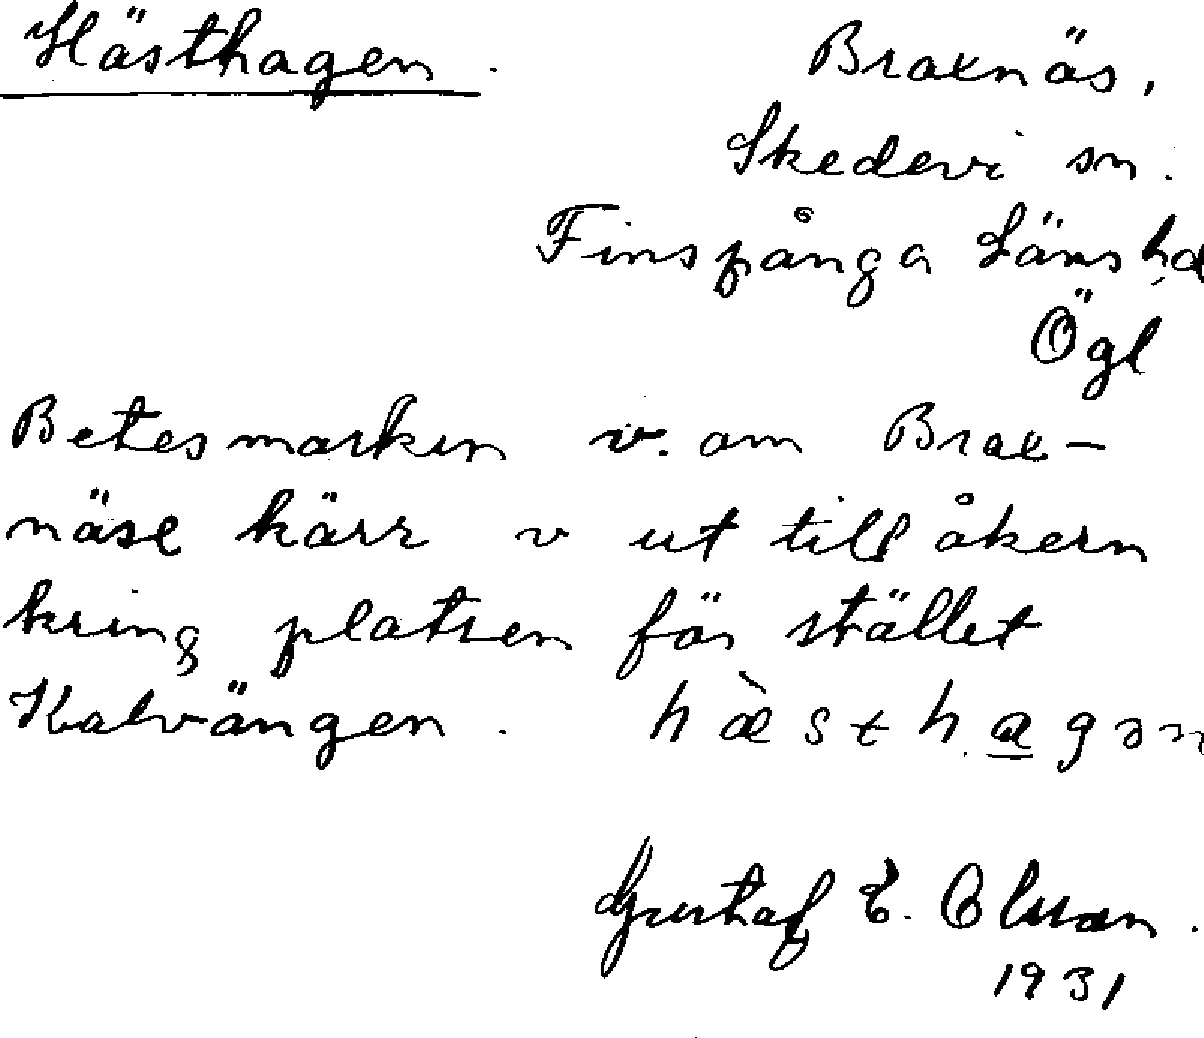 Hästhagen.
Braxnäs,
Skedevi sn.
Finspånga Länshd
Ögl
Betesmarken v. om Brax-
näse kärr v ut till åkern
kring platsen för stället
Kalvängen. hæ̀sthagən
Gustaf E. Olsson.
1931